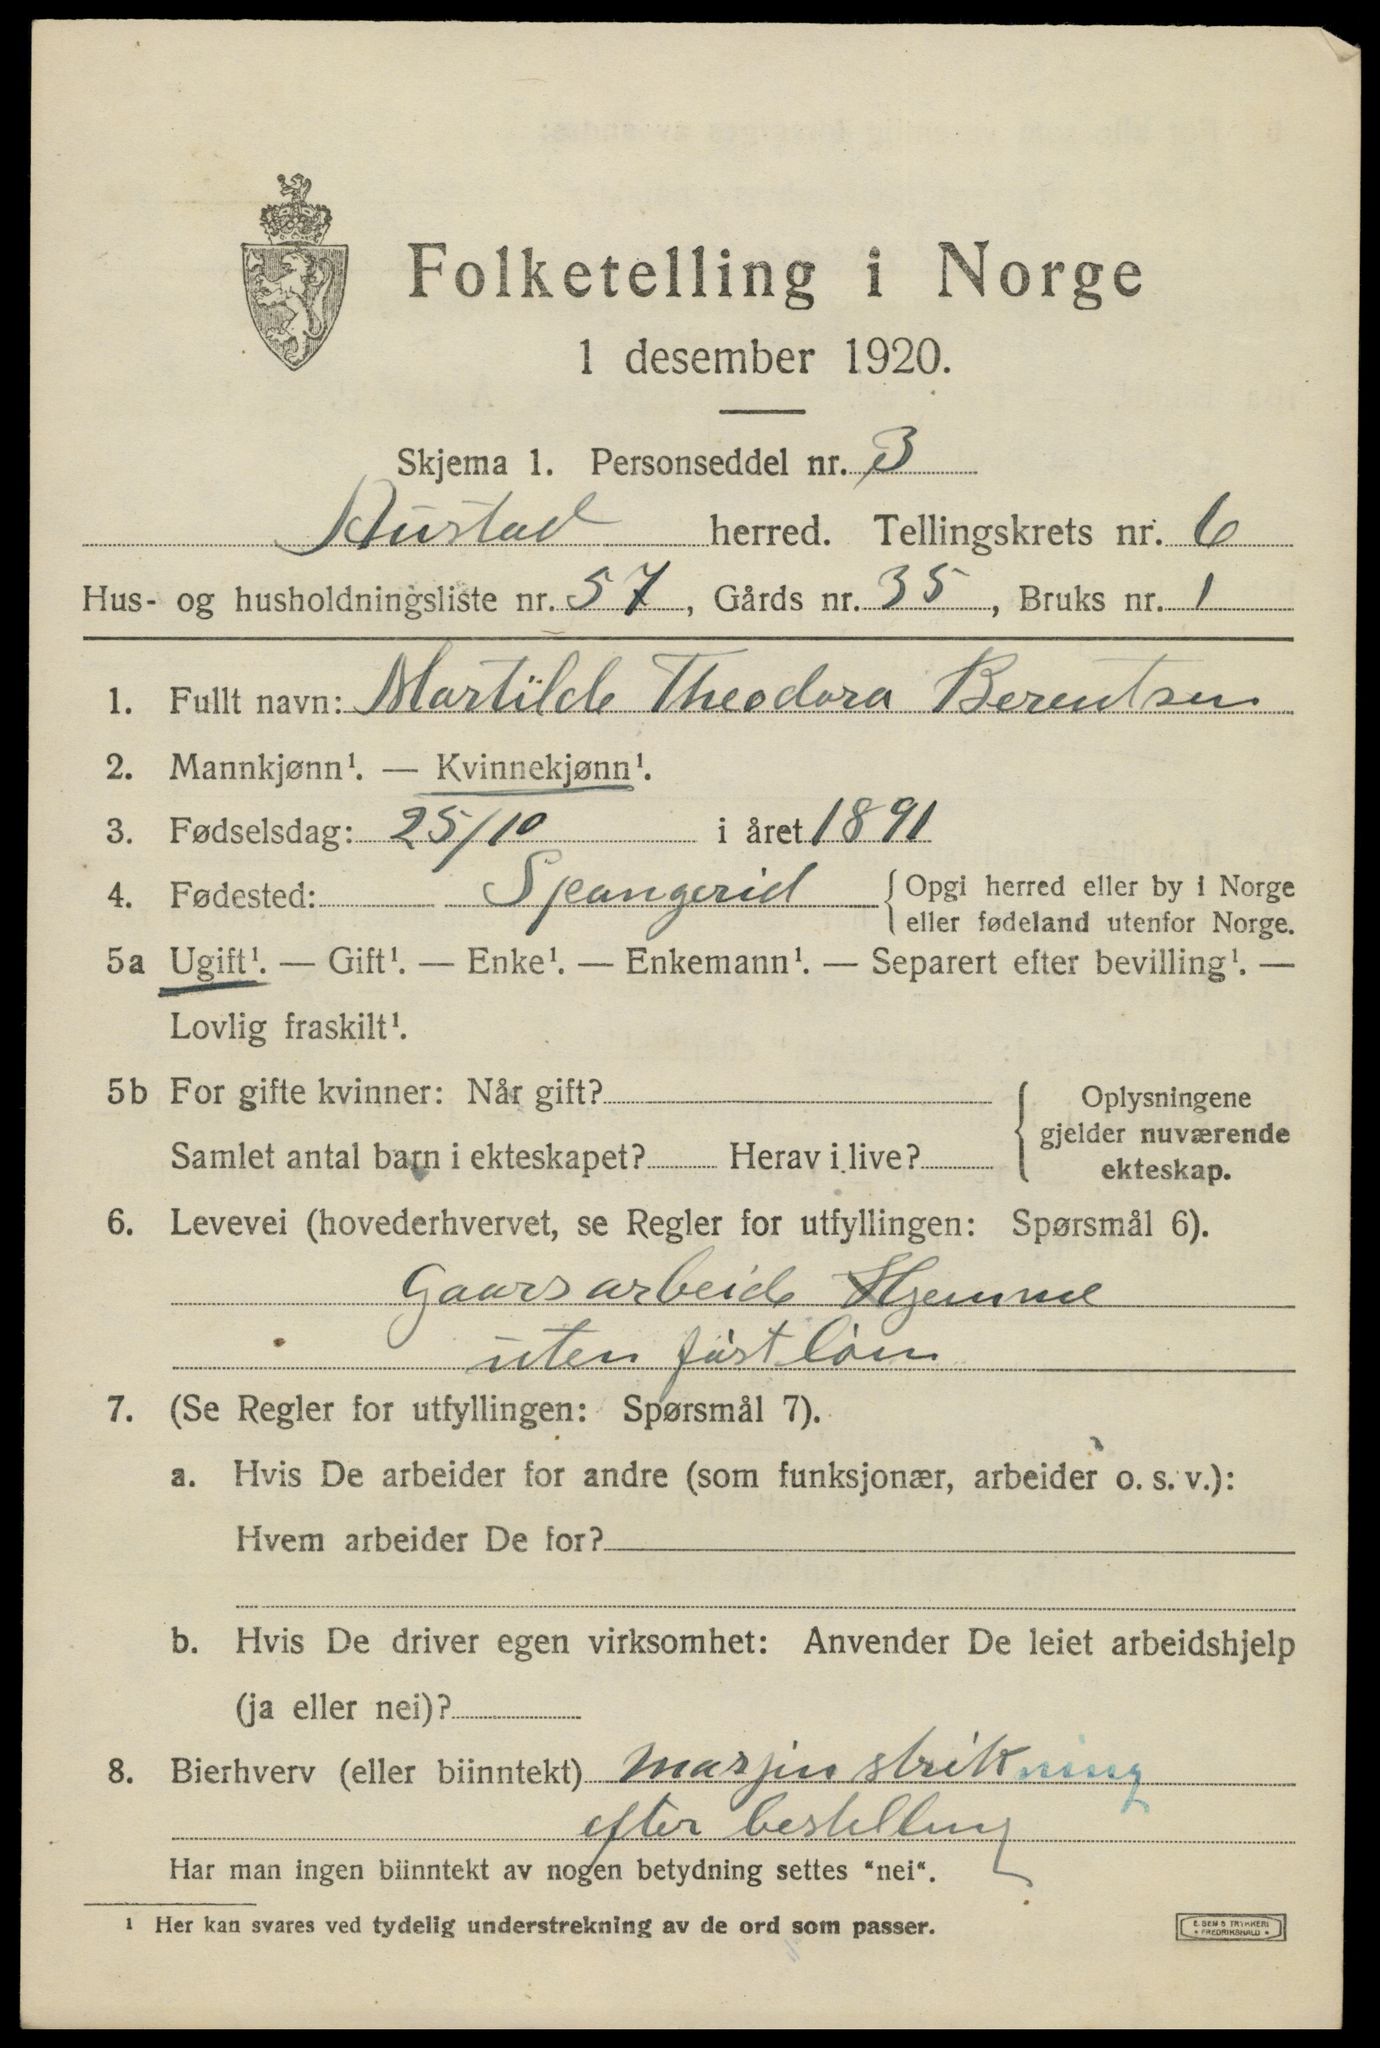 Folketelling i Norge
1 desember 1920.
Skjema 1. Personseddel nr. 3
Austad herred. Tellingskrets nr. 6
Hus- og husholdningsliste nr. 57, Gårds nr. 35, Bruks nr. 1
1. Fullt navn: Martilde Theodora Berentsen
2. Mannkjønn¹. — Kvinnekjønn¹.
3. Fødselsdag: 25/10 i året 1891
4. Fødested: Spangerid { Opgi herred eller by i Norge
eller fødeland utenfor Norge.
5a Ugift¹. — Gift¹. — Enke¹. — Enkemann¹. — Separert efter bevilling¹. —
Lovlig fraskilt¹.
5b For gifte kvinner: Når gift?
Samlet antal barn i ekteskapet? Herav i live?
{ Oplysningene
gjelder nuværende
ekteskap.
6. Levevei (hovederhvervet, se Regler for utfyllingen: Spørsmål 6).
Gaarsarbeide Hjemme
uten fast løn
7. (Se Regler for utfyllingen: Spørsmål 7).
a. Hvis De arbeider for andre (som funksjonær, arbeider o. s. v.):
Hvem arbeider De for?
b. Hvis De driver egen virksomhet: Anvender De leiet arbeidshjelp
(ja eller nei)?
8. Bierhverv (eller biinntekt) masjin strikning
efter bestelling
Har man ingen biinntekt av nogen betydning settes "nei".
¹ Her kan svares ved tydelig understrekning av de ord som passer.
E. SEM S TRYKKERI
FREDRIKSHALD